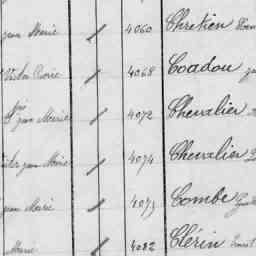 Jean Marie / 4060 Chretien
Victor / 4068 Coadou
Jean Marie / 4072 Chevalier
Jean Marie / 4074 Chevalier
Jean Marie / 4073 Combe
Marie / 4082 Clérin Ernest